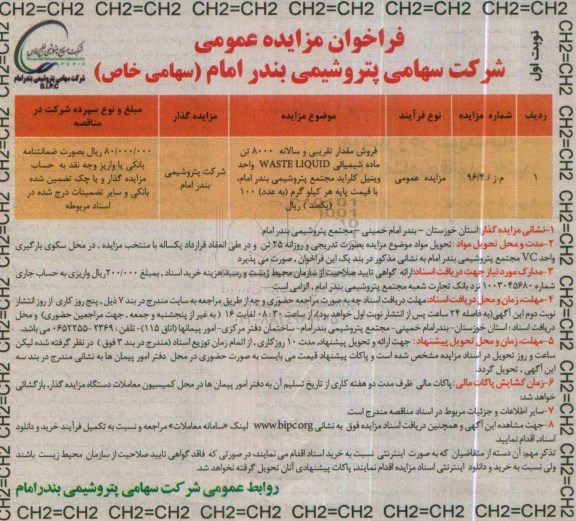 CH2=CH2=CH2=CH2=CH2=CH2=CH2=CH2=CH2=CH2
نوبت اول
فراخوان مزایده عمومی
شرکت سهامی پتروشیمی بندر امام (سهامی خاص)
شرکت سهامی پتروشیمی بندرامام
B.I.P.C
ردیف
شماره مزایده
نوع فرآیند
موضوع مزایده
مزایده گذار
مبلغ و نوع سپرده شرکت در مناقصه
۱
م ز / ۹۶/۴
مزایده عمومی
فروش مقدار تقریبی و سالانه ۸۰۰۰ تن
ماده شیمیائی WASTE LIQUID واحد
وینیل کلراید مجتمع پتروشیمی بندر امام،
با قیمت پایه هر کیلو گرم (به عدد) ۱۰۰
(یکصد) ریال
شرکت پتروشیمی
بندر امام
۸۰/۰۰۰/۰۰۰ ریال بصورت ضمانتنامه
بانکی یا واریز وجه نقد به حساب
مزایده گذار و یا چک تضمین شده
بانکی و سایر تضمینات درج شده در
اسناد مربوطه
۱-نشانی مزایده گذار: استان خوزستان - بندر امام خمینی - مجتمع پتروشیمی بندر امام
۲-مدت و محل تحویل مواد: تحویل مواد موضوع مزایده بصورت تدریجی و روزانه ۲۵ تن و در طی انعقاد قرارداد یکساله با منتخب مزایده ، در محل سکوی بارگیری
واحد VC مجتمع پتروشیمی بندر امام به نشانی مذکور در بند یک این فراخوان ، صورت می پذیرد
۳-مدارک مورد نیاز جهت دریافت اسناد: ارائه گواهی تایید صلاحیت از سازمان محیط زیست و رسید هزینه خرید اسناد ، بمبلغ ۲۰۰/۰۰۰ ریال واریزی به حساب جاری
شماره ۱۰۰۳۰۴۵۶۸۰ نزد بانک تجارت شعبه مجتمع پتروشیمی بندر امام ، الزامی است
۴-مهلت، زمان و محل دریافت اسناد: مهلت دریافت اسناد چه به صورت مراجعه حضوری و چه از طریق مراجعه به سایت مندرج در بند ۷ ذیل ، پنج روز کاری از روز انتشار
نوبت دوم این آگهی(به فاصله ۲۴ ساعت پس از انتشار نوبت اول خواهد بود)، از ساعت ۰۸:۳۰ لغایت ۱۶ ( به غیر از پنجشنبه و جمعه ، جهت مراجعین حضوری) و محل
دریافت اسناد: استان خوزستان-بندرامام خمینی- مجتمع پتروشیمی بندرامام- ساختمان دفتر مرکزی-امور پیمانها (اتاق ۱۱۵)- تلفن: ۲۳۶۹ - ۰۶۵۲۲۵۵ می باشد.
۵-مهلت، زمان و محل تحویل پیشنهاد: جهت ارائه و تحویل پیشنهاد، مدت ۱۰ روزکاری ، از اتمام زمان توزیع اسناد (مندرج در بند ۴ فوق ) در نظر گرفته شده لیکن
ساعت و روز تحویل در اسناد مزایده مشخص شده است و پاکات پیشنهاد قیمت می بایست به صورت حضوری در محل دفتر امور پیمان ها به نشانی مندرج در بند سه
این آگهی ، تحویل گردد.
۶-زمان گشایش پاکات مالی: پاکات مالی ظرف مدت دو هفته کاری از تاریخ تسلیم آن به دفتر امور پیمان ها در محل کمیسیون معاملات دستگاه مزایده گذار، بازگشائی
خواهد شد.
۷-سایر اطلاعات و جزئیات مربوط در اسناد مناقصه مندرج است.
۸-جهت مشاهده این آگهی و همچنین دریافت اسناد مزایده فوق به نشانی www.bipc.org لینک «سامانه معاملات» مراجعه و نسبت به تکمیل فرآیند خرید و دانلود
اسناد، اقدام نمایید
تذکر مهم: آن دسته از متقاضیان که به صورت اینترنتی نسبت به خرید اسناد اقدام می نمایند، در صورتی که فاقد گواهی تایید صلاحیت از سازمان محیط زیست باشند
ولی نسبت به خرید و دانلود اینترنتی اسناد مزایده اقدام نمایند، پاکات پیشنهادی آنان تحویل گرفته نخواهد شد.
روابط عمومی شرکت سهامی پتروشیمی بندرامام
CH2=CH2=CH2=CH2=CH2=CH2=CH2=CH2=CH2=CH2